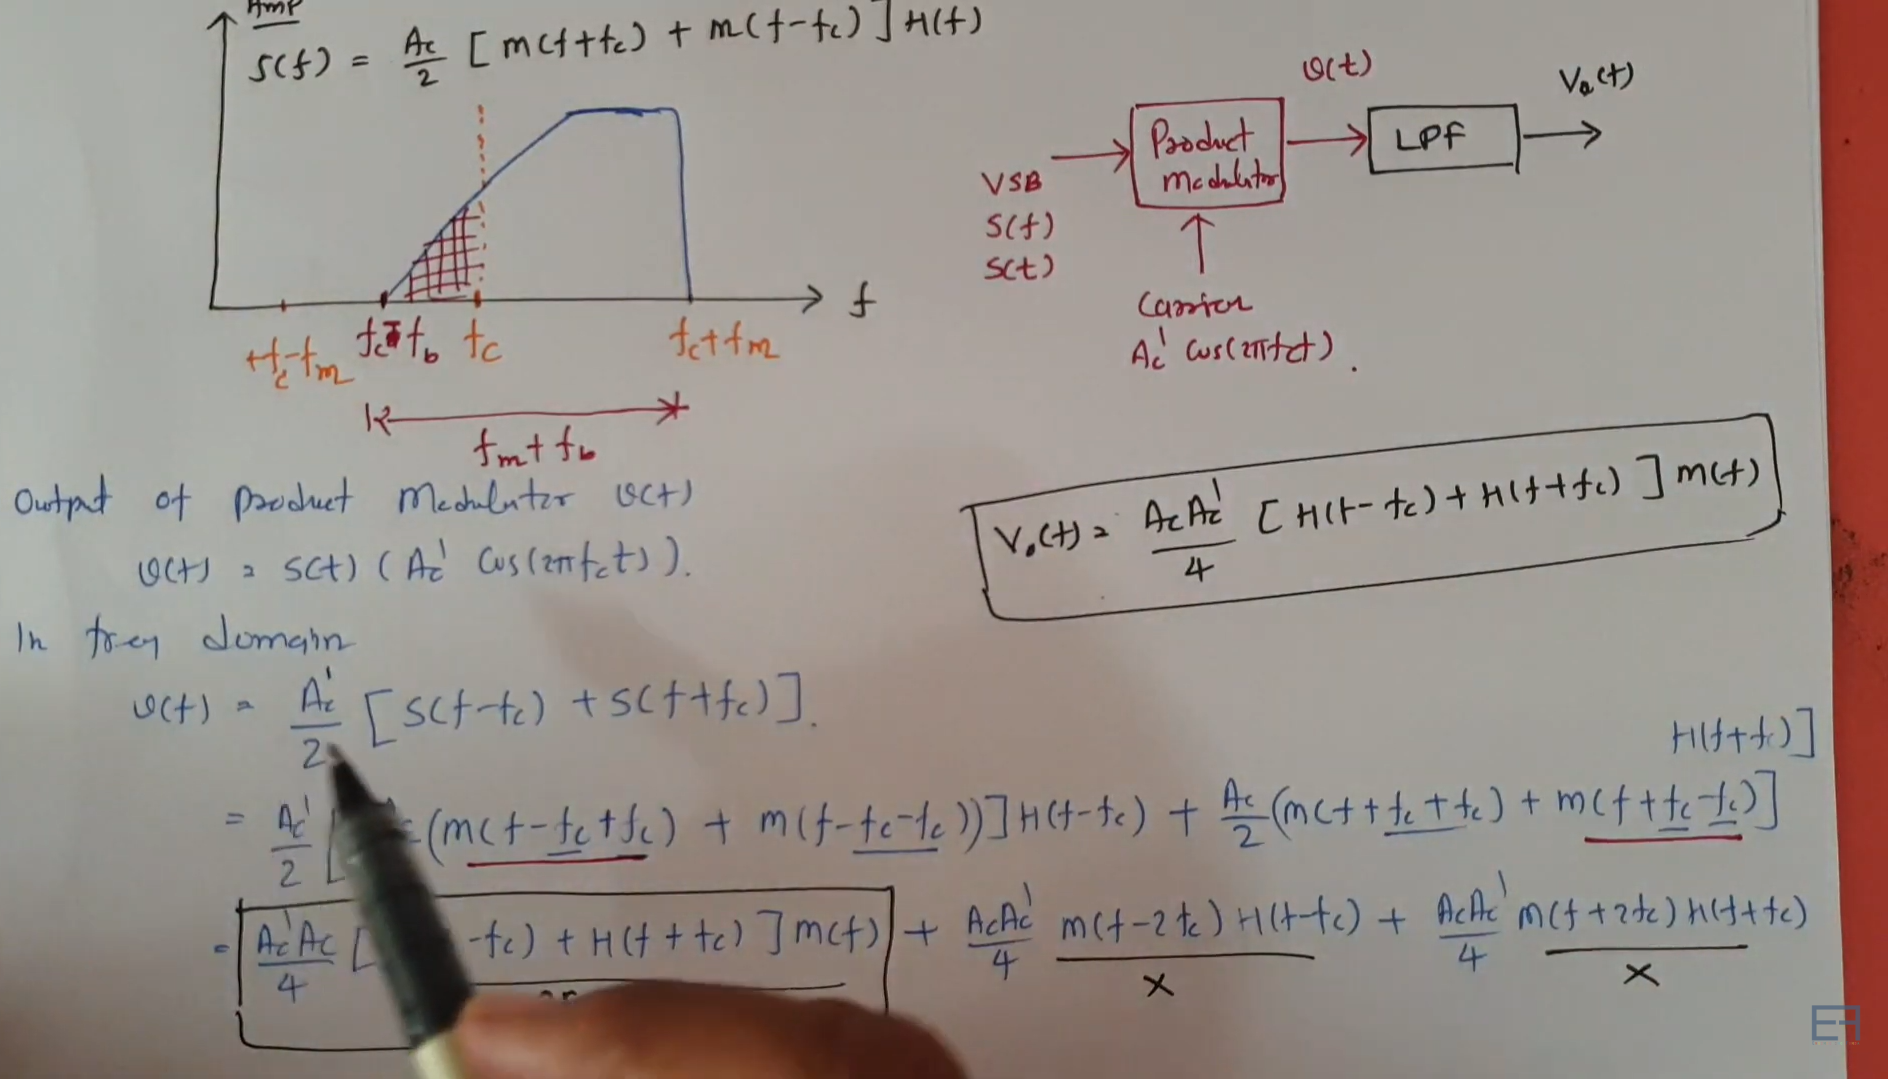 Amp
S(f) = Ac/2 [ m(f+fc) + m(f-fc) ] H(f)
f
+fc-fm
fc-fb
fc
fc+fm
fm+fb
VSB
S(f)
S(t)
Product
Modulator
v(t)
LPF
Vo(t)
Carrier
Ac' Cos(2πfct).
Output of Product Modulator v(t)
v(t) = S(t) ( Ac' Cos(2πfct) ).
In freq domain
v(f) = Ac'/2 [ S(f-fc) + S(f+fc) ].
Vo(f) = AcAc'/4 [ H(f-fc) + H(f+fc) ] m(f)
H(f+fc)]
= Ac'/2 [ (m(f-fc+fc) + m(f-fc-fc))] H(f-fc) + Ac/2 (m(f+fc+fc) + m(f+fc-fc)]
= Ac'Ac/4 [ -fc) + H(f+fc) ] m(f) + AcAc'/4 m(f-2fc) H(f-fc) + AcAc'/4 m(f+2fc) H(f+fc)
x x
EF